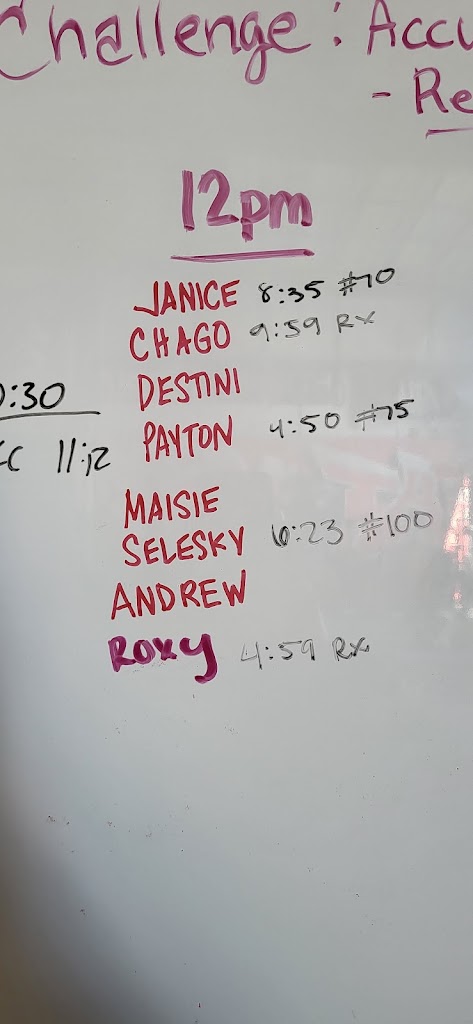 Challenge: Accu
- Re
12pm
JANICE 8:35 #70
CHAGO 9:59 RX
DESTINI
:30
PAYTON 4:50 #75
11:12
MAISIE
SELESKY 6:23 #100
ANDREW
ROXY 4:59 RX